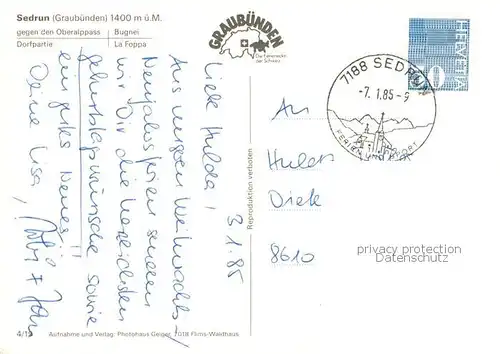 Sedrun (Graubünden) 1400 m ü.M.
gegen den Oberalppass Bugnei
Dorfpartie La Foppa
GRAUBÜNDEN
Die Ferienecke
der Schweiz
HELVETIA
7188 SEDRUN
-7. 1.85-9
FERIEN
SPORT
3.1.85
Liebe Hulda!
Aus unseren Weihnachts-/
Neujahrsferien senden
wir Dir die herzlichsten
Geburtstagswünsche sowie
ein gutes Neues!!
Deine Lisa,
An
Diek
8610
privacy protection
Datenschutz
Reproduktion verboten
4/19 Aufnahme und Verlag: Photohaus Geiger 7018 Flims-Waldhaus